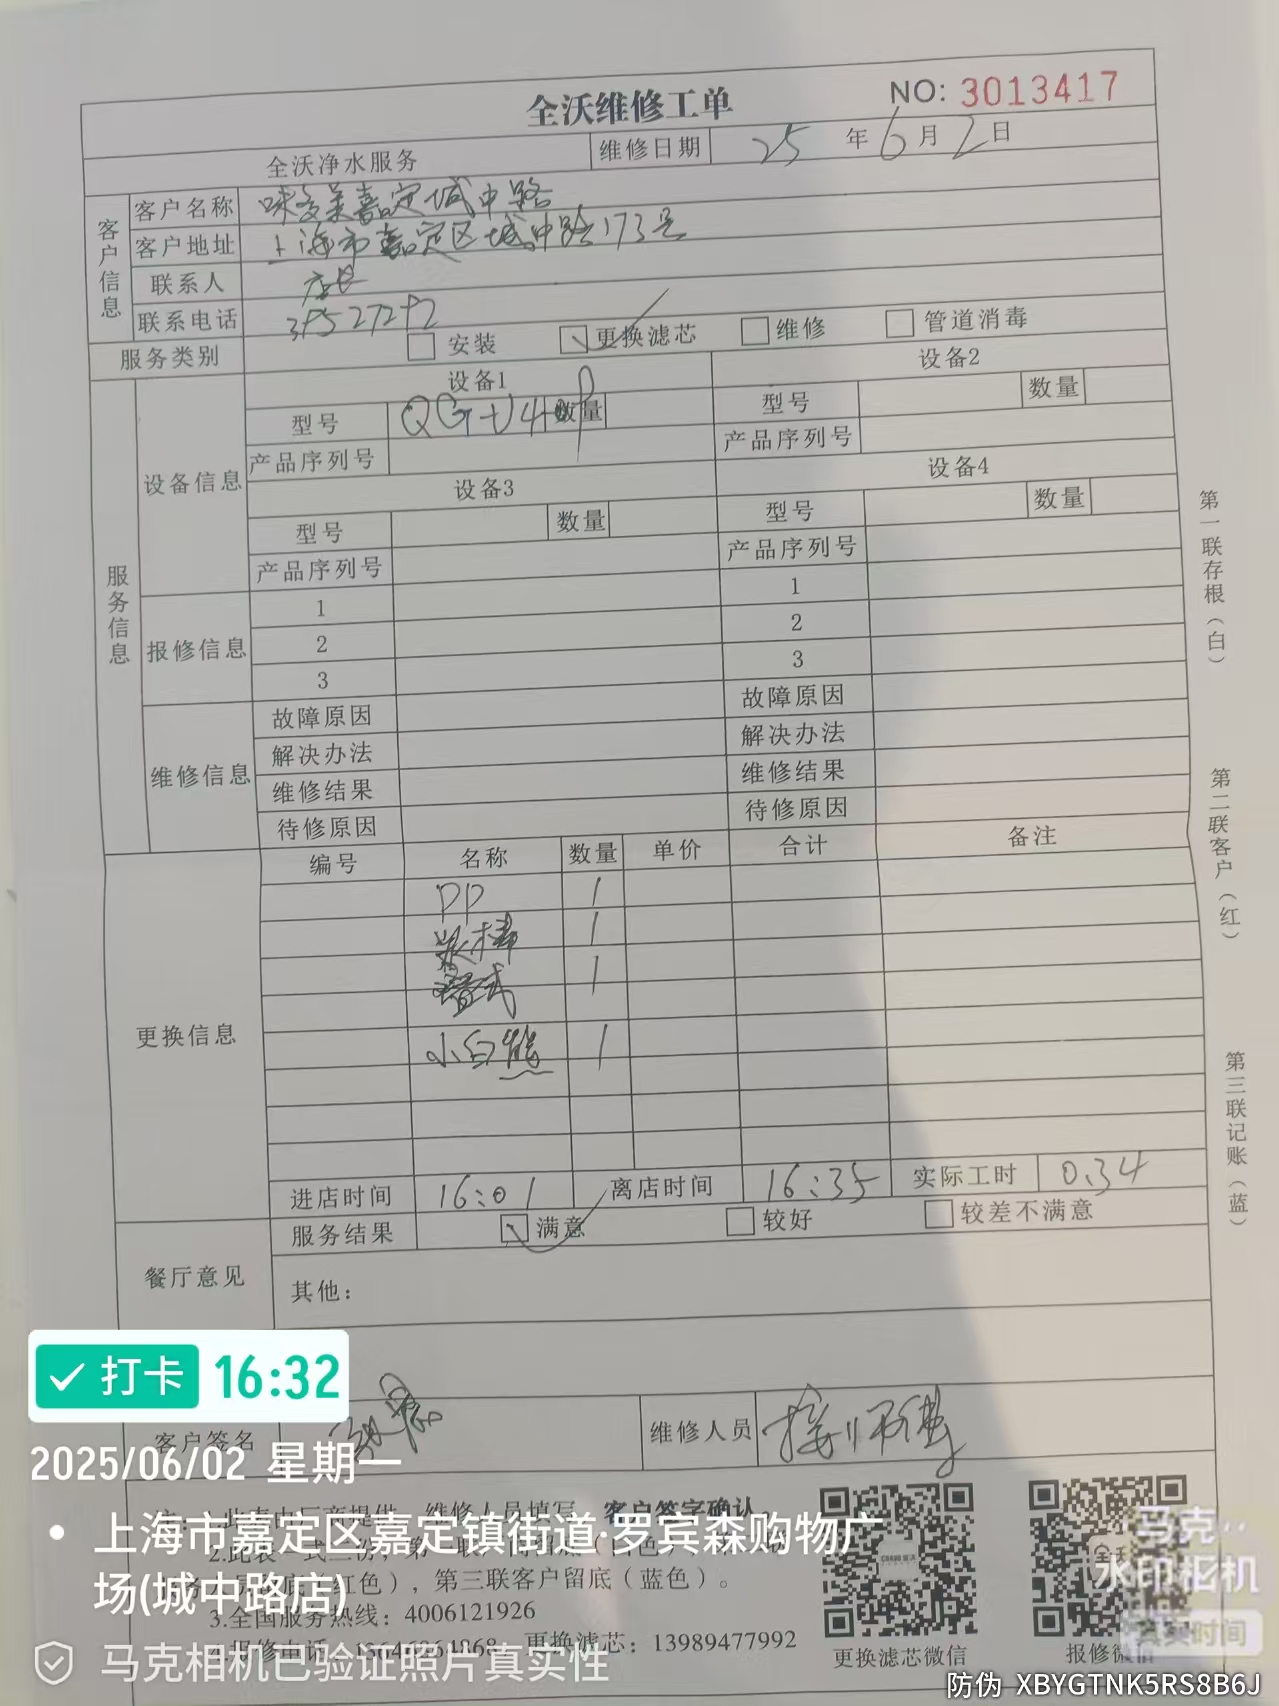 全沃维修工单
NO: 3013417
全沃净水服务 维修日期 25 年 6 月 2 日
客户信息
客户名称 味多美嘉定城中路
客户地址 上海市嘉定区城中路173号
联系人 店长
联系电话
服务类别 安装 更换滤芯 维修 管道消毒
服务信息
设备信息
设备1 设备2
型号 QG-U4 数量 型号 数量
产品序列号 产品序列号
设备3 设备4
型号 数量 型号 数量
产品序列号 产品序列号
报修信息
1 1
2 2
3 3
维修信息
故障原因 故障原因
解决办法 解决办法
维修结果 维修结果
待修原因 待修原因
更换信息
编号 名称 数量 单价 合计 备注
PP 1
炭棒 1
1
小白熊 1
进店时间 16:01 离店时间 16:35 实际工时 0.34
餐厅意见
服务结果 满意 较好 较差不满意
其他：
客户签名 维修人员
客户签字确认
3.全国服务热线：4006121926
更换滤芯：13989477992
更换滤芯微信 报修微信
第一联存根（白）
第二联客户（红）
第三联记账（蓝）
打卡 16:32
2025/06/02 星期一
上海市嘉定区嘉定镇街道·罗宾森购物广
场(城中路店)
马克相机已验证照片真实性
马克
水印相机
真实时间
防伪 XBYGTNK5RS8B6J